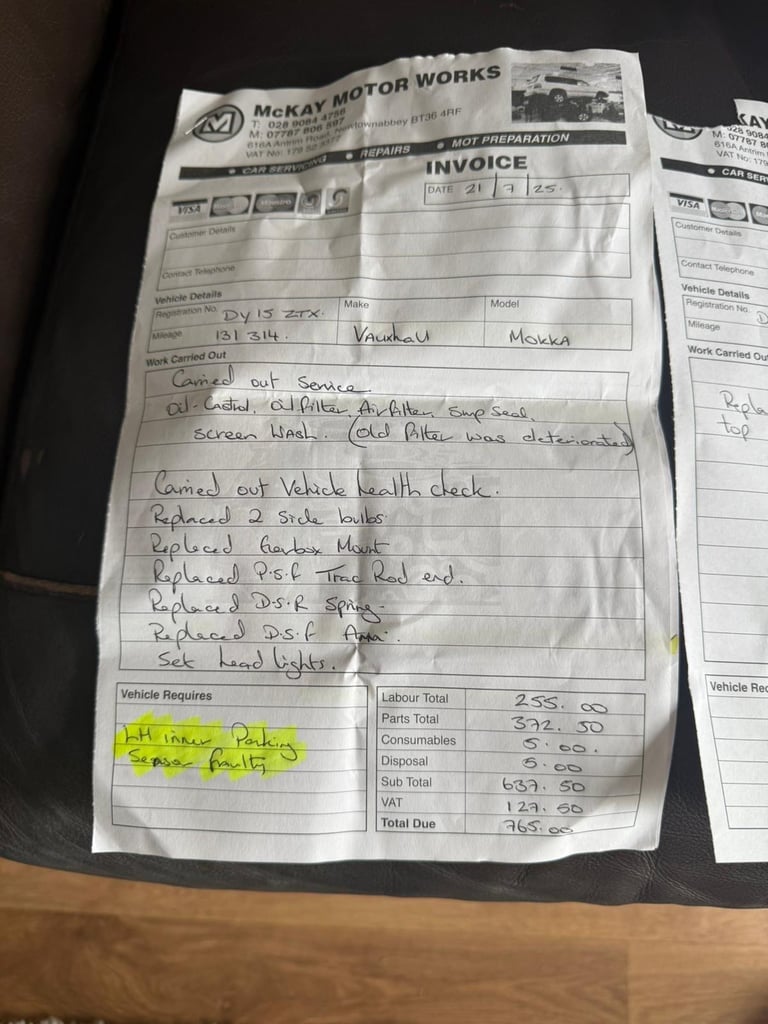 McKAY MOTOR WORKS
T: 028 9084 4756
M: 07787 806 597
616A Antrim Road, Newtownabbey BT36 4RF
VAT No: 179 52
• CAR SERVICING • REPAIRS • MOT PREPARATION
INVOICE
DATE 21/7/25.
VISA Maestro
Customer Details
Contact Telephone
Vehicle Details
Registration No. DY15 ZTX. Make Model
Mileage 131 314. Vauxhall MOKKA
Work Carried Out
Carried out Service.
Oil-Castrol, Oil filter, Air filter, Sump Seal.
Screen Wash. (Old filter was deteriorated)
Carried out Vehicle health check.
Replaced 2 Side bulbs.
Replaced Gearbox Mount
Replaced P.S.f Trac Rod end.
Replaced D.S.R Spring-
Replaced D.S.f
Set head lights.
Vehicle Requires
LH inner Parking
Sensor faulty
Labour Total 255.00
Parts Total 372.50
Consumables 5.00.
Disposal 5.00
Sub Total 637.50
VAT 127.50
Total Due 765.00
KAY
028 9084
M: 07787 8
616A Antrim
VAT No: 179
• CAR SER
VISA
Customer Details
Contact Telephone
Vehicle Details
Registration No. D
Mileage
Work Carried Ou
Repla
top
Vehicle Req